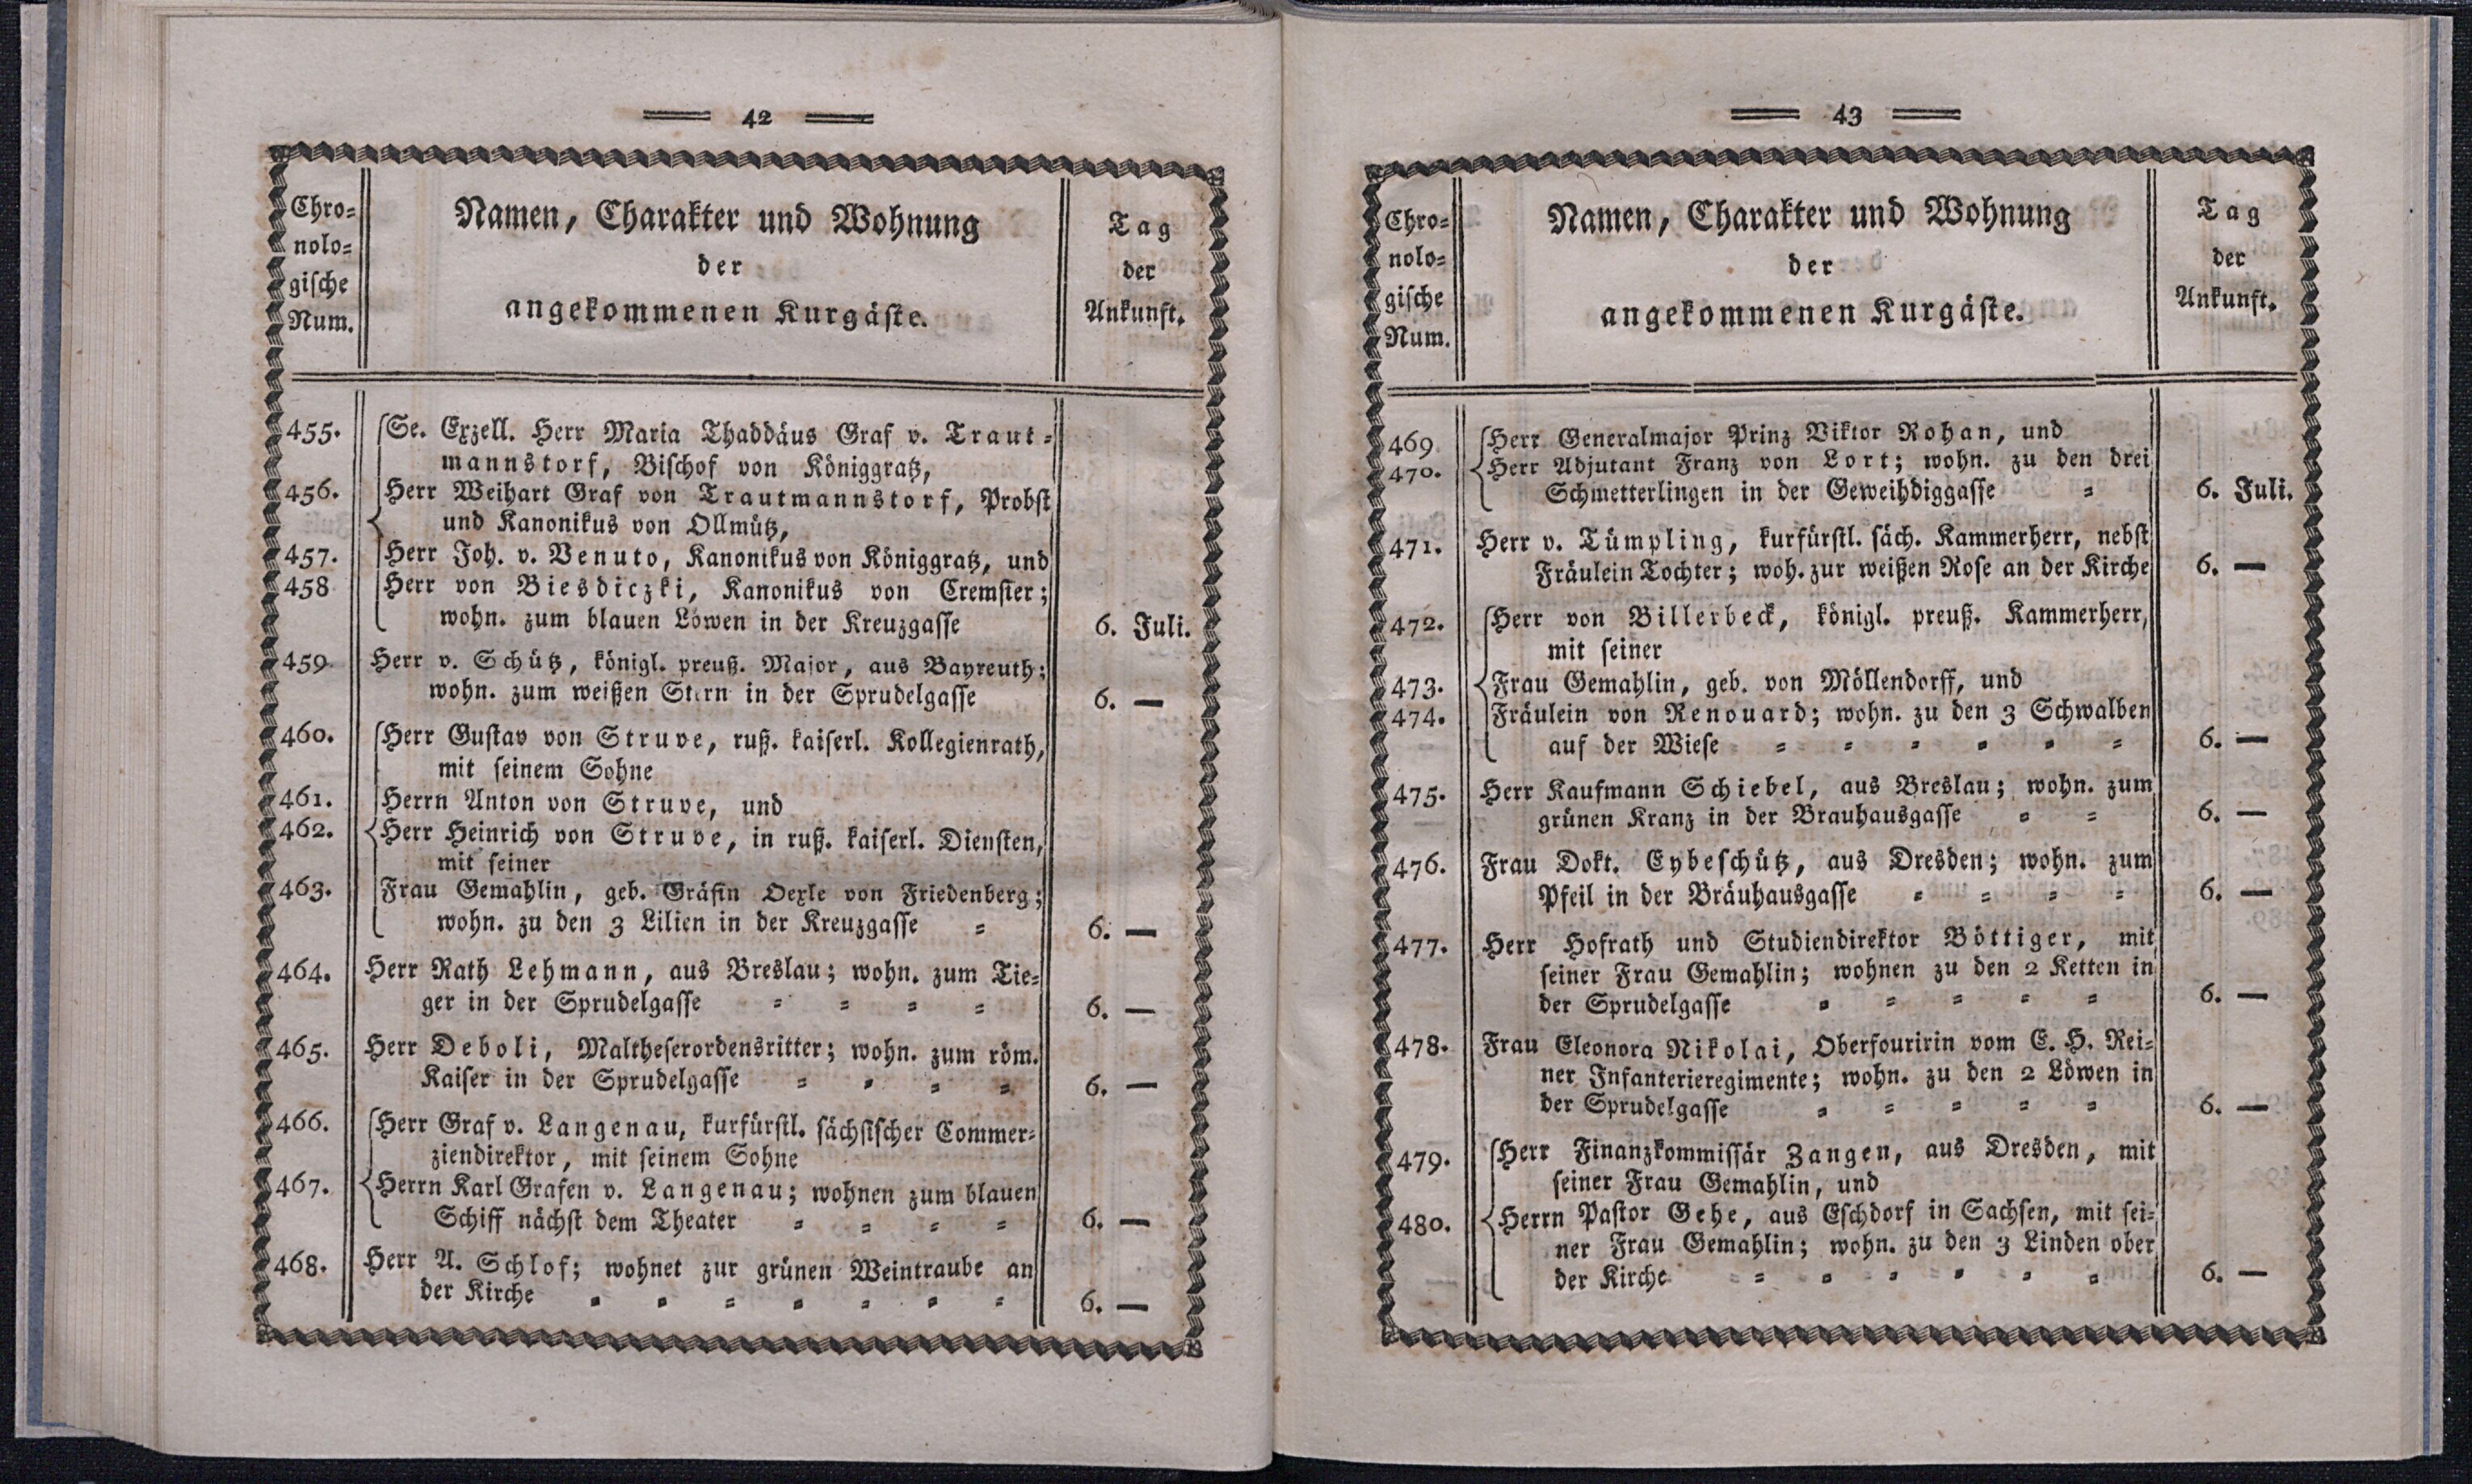 42
Chro=
nolo=
gische
Num.
Namen, Charakter und Wohnung
der
angekommenen Kurgäste.
Tag
der
Ankunft.
455. Se. Exzell. Herr Maria Thaddäus Graf v. Traut=
mannstorf, Bischof von Königgratz,
456. Herr Weihart Graf von Trautmannstorf, Probst
und Kanonikus von Ollmütz,
457. Herr Joh. v. Venuto, Kanonikus von Königgratz, und
458 Herr von Biesdiczki, Kanonikus von Cremsier;
wohn. zum blauen Löwen in der Kreuzgasse 6. Juli.
459 Herr v. Schütz, königl. preuß. Major, aus Bayreuth;
wohn. zum weißen Stern in der Sprudelgasse 6. —
460. Herr Gustav von Struve, ruß. kaiserl. Kollegienrath,
mit seinem Sohne
461. Herrn Anton von Struve, und
462. Herr Heinrich von Struve, in ruß. kaiserl. Diensten,
mit seiner
463. Frau Gemahlin, geb. Gräfin Oexle von Friedenberg;
wohn. zu den 3 Lilien in der Kreuzgasse = 6. —
464. Herr Rath Lehmann, aus Breslau; wohn. zum Tie=
ger in der Sprudelgasse = = = = 6. —
465. Herr Deboli, Maltheserordensritter; wohn. zum röm.
Kaiser in der Sprudelgasse = = = = 6. —
466. Herr Graf v. Langenau, kurfürstl. sächsischer Commer=
ziendirektor, mit seinem Sohne
467. Herrn Karl Grafen v. Langenau; wohnen zum blauen
Schiff nächst dem Theater = = = = 6. —
468. Herr A. Schlof; wohnet zur grünen Weintraube an
der Kirche = = = = = = = 6. —
43
Chro=
nolo=
gische
Num.
Namen, Charakter und Wohnung
der
angekommenen Kurgäste.
Tag
der
Ankunft.
469 Herr Generalmajor Prinz Viktor Rohan, und
470. Herr Adjutant Franz von Lort; wohn. zu den drei
Schmetterlingen in der Geweihdiggasse = 6. Juli.
471. Herr v. Tümpling, kurfürstl. säch. Kammerherr, nebst
Fräulein Tochter; woh. zur weißen Rose an der Kirche 6. —
472. Herr von Billerbeck, königl. preuß. Kammerherr,
mit seiner
473. Frau Gemahlin, geb. von Möllendorff, und
474. Fräulein von Renouard; wohn. zu den 3 Schwalben
auf der Wiese = = = = = = 6. —
475. Herr Kaufmann Schiebel, aus Breslau; wohn. zum
grünen Kranz in der Brauhausgasse = = 6. —
476. Frau Dokt. Eybeschütz, aus Dresden; wohn. zum
Pfeil in der Bräuhausgasse = = = = 6. —
477. Herr Hofrath und Studiendirektor Böttiger, mit
seiner Frau Gemahlin; wohnen zu den 2 Ketten in
der Sprudelgasse = = = = = 6. —
478. Frau Eleonora Nikolai, Oberfouririn vom E. H. Rei=
ner Infanterieregimente; wohn. zu den 2 Löwen in
der Sprudelgasse = = = = = 6. —
479. Herr Finanzkommissär Zangen, aus Dresden, mit
seiner Frau Gemahlin, und
480. Herrn Pastor Gehe, aus Eschdorf in Sachsen, mit sei=
ner Frau Gemahlin; wohn. zu den 3 Linden ober
der Kirche = = = = = = 6. —